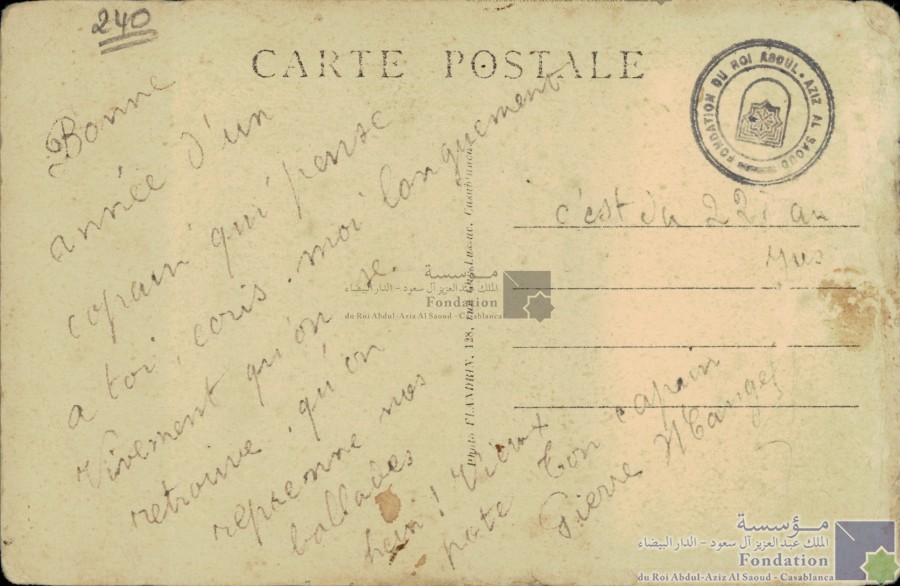 240
CARTE POSTALE
FONDATION DU ROI ABDUL-AZIZ AL SAOUD
Bonne
année d'un
copain qui pense
a toi, ecris-moi longuement
Vivement qu'on se
retrouve, qu'on
reprenne nos
ballades
hein! Vieux
pote Ton copain
Pierre
c'est du 22 au
Photo FLANDRIN, 128, Casablanca
مؤسسة
الملك عبد العزيز آل سعود - الدار البيضاء
Fondation
du Roi Abdul-Aziz Al Saoud - Casablanca
مؤسسة
الملك عبد العزيز آل سعود - الدار البيضاء
Fondation
du Roi Abdul-Aziz Al Saoud - Casablanca